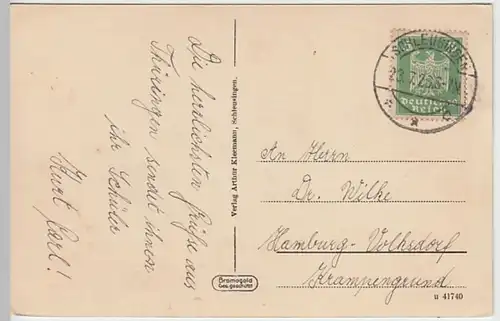 Die herzlichsten Grüße aus
Thüringen sendet ihnen
ihr Schüler
Kurt Carl!
Verlag Arthur Kleemann, Schleusingen.
Bromogold
Ges. geschützt
SCHLEUSINGEN
23.7.25
Deutsches
Reich
An Herrn
Dr. Wilke
Hamburg-Volksdorf
Krampengrund
u 41740